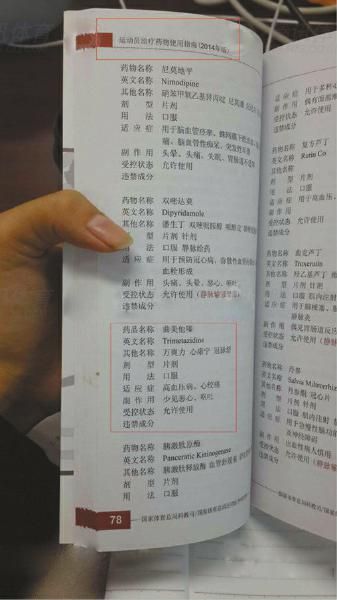 运动员治疗药物使用指南(2014年版)
药物名称 尼莫地平
英文名称 Nimodipine
其他名称 硝苯甲氧乙基异丙啶
剂 型 片剂
用 法 口服
适 应 症 用于脑血管痉挛、蛛网膜下
痛、脑血管性痴呆、突发性耳聋
副 作 用 头晕、头痛、头昏、胃肠道不适等
受控状态 允许使用
违禁成分
药物名称 双嘧达莫
英文名称 Dipyridamole
其他名称 潘生丁 双嘧啶胺醇 哌醇定
型 片剂 针剂
法 口服 静脉给药
适 应 症 用于预防冠心病、弥散性血管内
血栓形成
副 作 用 头痛、头晕、恶心、呕吐
受控状态 允许使用(静脉输液禁用)
违禁成分
药品名称 曲美他嗪
英文名称 Trimetazidine
其他名称 万爽力 心康宁 冠脉舒
剂 型 片剂
用 法 口服
适 应 症 高血压病、心绞痛
副 作 用 少见恶心、呕吐
受控状态 允许使用
违禁成分
药物名称 胰激肽原酶
英文名称 Pancreatic Kininogenase
其他名称 胰激肽释放酶 血管舒缓素
剂 型 片剂
用 法 口服
78 国家体育总局科教司/国家体育总局
适 应 症 用于多种
副 作 用 偶有面部
受控状态 允许使用
违禁成分
药物名称 复方芦丁
英文名称 Rutin Co
其他名称
剂 型 片剂
用 法 口服
适 应 症 用于高血压
副 作 用
受控状态 允许使用
违禁成分
药物名称 曲克芦丁
英文名称 Troxerutin
其他名称 羟乙基芦丁
剂 型 片剂 针剂
用 法 口服 肌内注射
适 应 症 用于脑梗塞、
静脉炎
副 作 用 偶见胃肠道反
受控状态 允许使用
违禁成分
药物名称 丹参
英文名称 Salvia Miltiorrhiz
其他名称 丹参酮 冠心片
剂 型 片剂 针剂
用 法 口服 肌肉注射
适 应 症 用于急慢性肠功
及神经障碍
副 作 用 出血性病人慎用
受控状态 允许使用
违禁成分
国家体育总局科教司/国家体